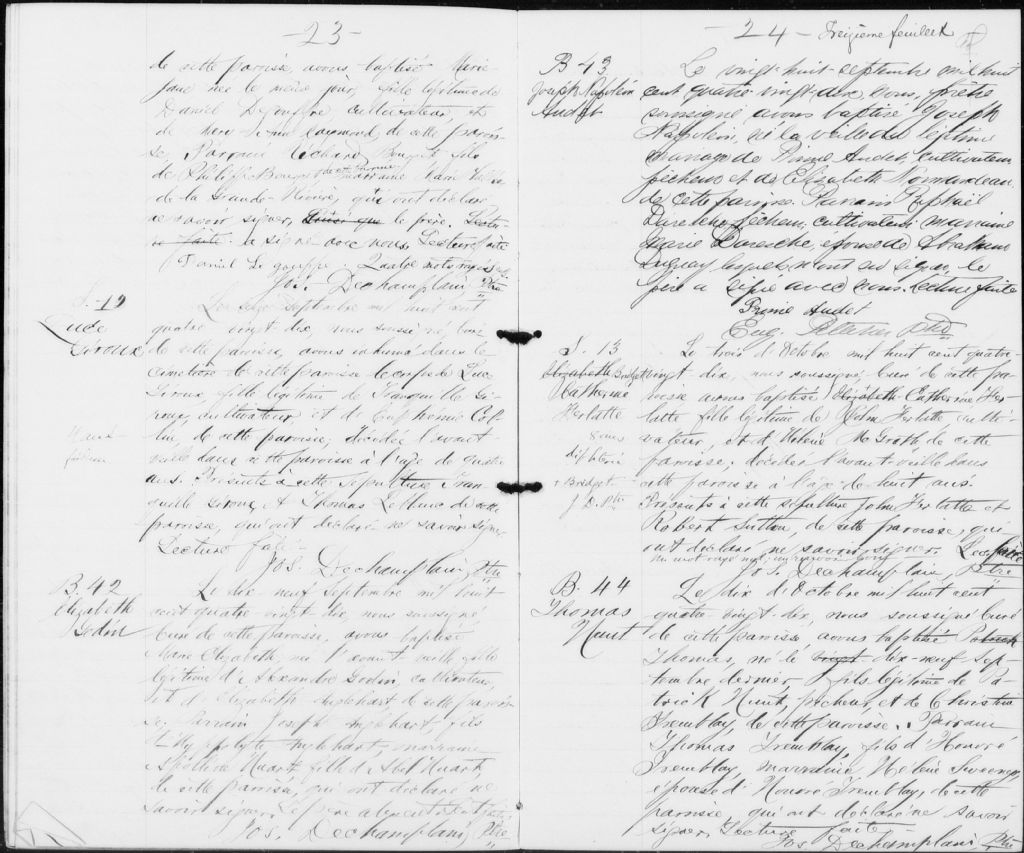 -23-
de cette paroisse, avons baptisé Marie
née le même jour, fille légitime de
Daniel cultivateur et
de Raymond de cette parois-
se. Parrain Richard fils
de Marraine Marie
de la Grande-Rivière, qui ont déclaré
ne savoir signer, le père
a signé avec nous. Lecture faite
Daniel Quatre mots rayés
Jos. Dechamplain, Ptre
S.-12
Luce
Giroux
Le seize Septembre mil huit cent
quatre vingt dix, nous soussigné, curé
de cette paroisse, avons inhumé dans le
cimetière de cette paroisse le corps de Luce
Giroux, fille légitime de Tranquille Gi-
roux, cultivateur et de Euphémie Col-
lin, de cette paroisse, décédée l'avant-
veille dans cette paroisse à l'age de quatre
ans. Présents à cette sépulture Tran-
quille Giroux et Thomas de cette
paroisse, qui ont déclaré ne savoir signer
Lecture faite.
Jos. Dechamplain, Ptre
B. 42
Elizabeth
Godin
Le dix neuf Septembre mil huit
cent quatre-vingt dix, nous soussigné
Curé de cette paroisse, avons baptisé
Marie Elizabeth, née l'avant-veille, fille
légitime d'Alexandre Godin, cultivateur,
et d'Elizabeth Anglehart de cette parois-
se. Parrain Joseph Anglehart, fils
d'Hyppolyte Anglehart marraine
Huard fille d'Abel Huard,
de cette paroisse, qui ont déclaré ne
savoir signer. Le père absent. Lecture faite
Jos. Dechamplain, Ptre
-24- Treizième feuillet
B 43
Joseph Napoléon
Audet
Le vingt-huit septembre mil huit
cent quatre vingt-dix, nous, prêtre
soussigné avons baptisé Joseph
Napoléon, né la veille du légitime
mariage de Prime Audet, cultivateur,
pêcheur et de Elizabeth Normandeau
de cette paroisse. Parrain Raphael
pêcheur, cultivateur, marraine
Marie épouse de Abraham
Duguay lesquels n'ont su signer, le
père a signé avec nous. Lecture faite
Prime Audet
Eug. Pelletier Ptre
S. 13
Elizabeth Bridget
Catherine
Herlatte
8 ans
diphterie
+ Bridget
J. D. Ptre
Le trois d'Octobre mil huit cent quatre-
vingt-dix, nous soussigné, curé de cette pa-
roisse avons baptisé Elizabeth Catherine Her-
latte fille légitime de John Herlatte culti-
vateur, et d'Hélène McGrath de cette
paroisse, décédée l'avant-veille dans
cette paroisse à l'age de huit ans.
Présents à cette sépulture John Herlatte et
Robert Sutton, de cette paroisse, qui
ont déclaré ne savoir signer. Lec. faite
Un mot rayé nul, un renvoi bon
Jos. Dechamplain, Ptre
B. 44
Thomas
Hunt
Le dix d'Octobre mil huit cent
quatre vingt-dix, nous soussigné curé
de cette paroisse avons baptisé Patrick
Thomas, né le vingt dix-neuf Sep-
tembre dernier, fils légitime de Pa-
trick Hunt, pêcheur, et de Christine
Tremblay, de cette paroisse. Parrain
Thomas Tremblay, fils d'Honoré
Tremblay, marraine Hélène Sweeney,
épouse d'Honoré Tremblay, de cette
paroisse, qui ont déclaré ne savoir
signer, Lecture faite-
Jos. Dechamplain, Ptre